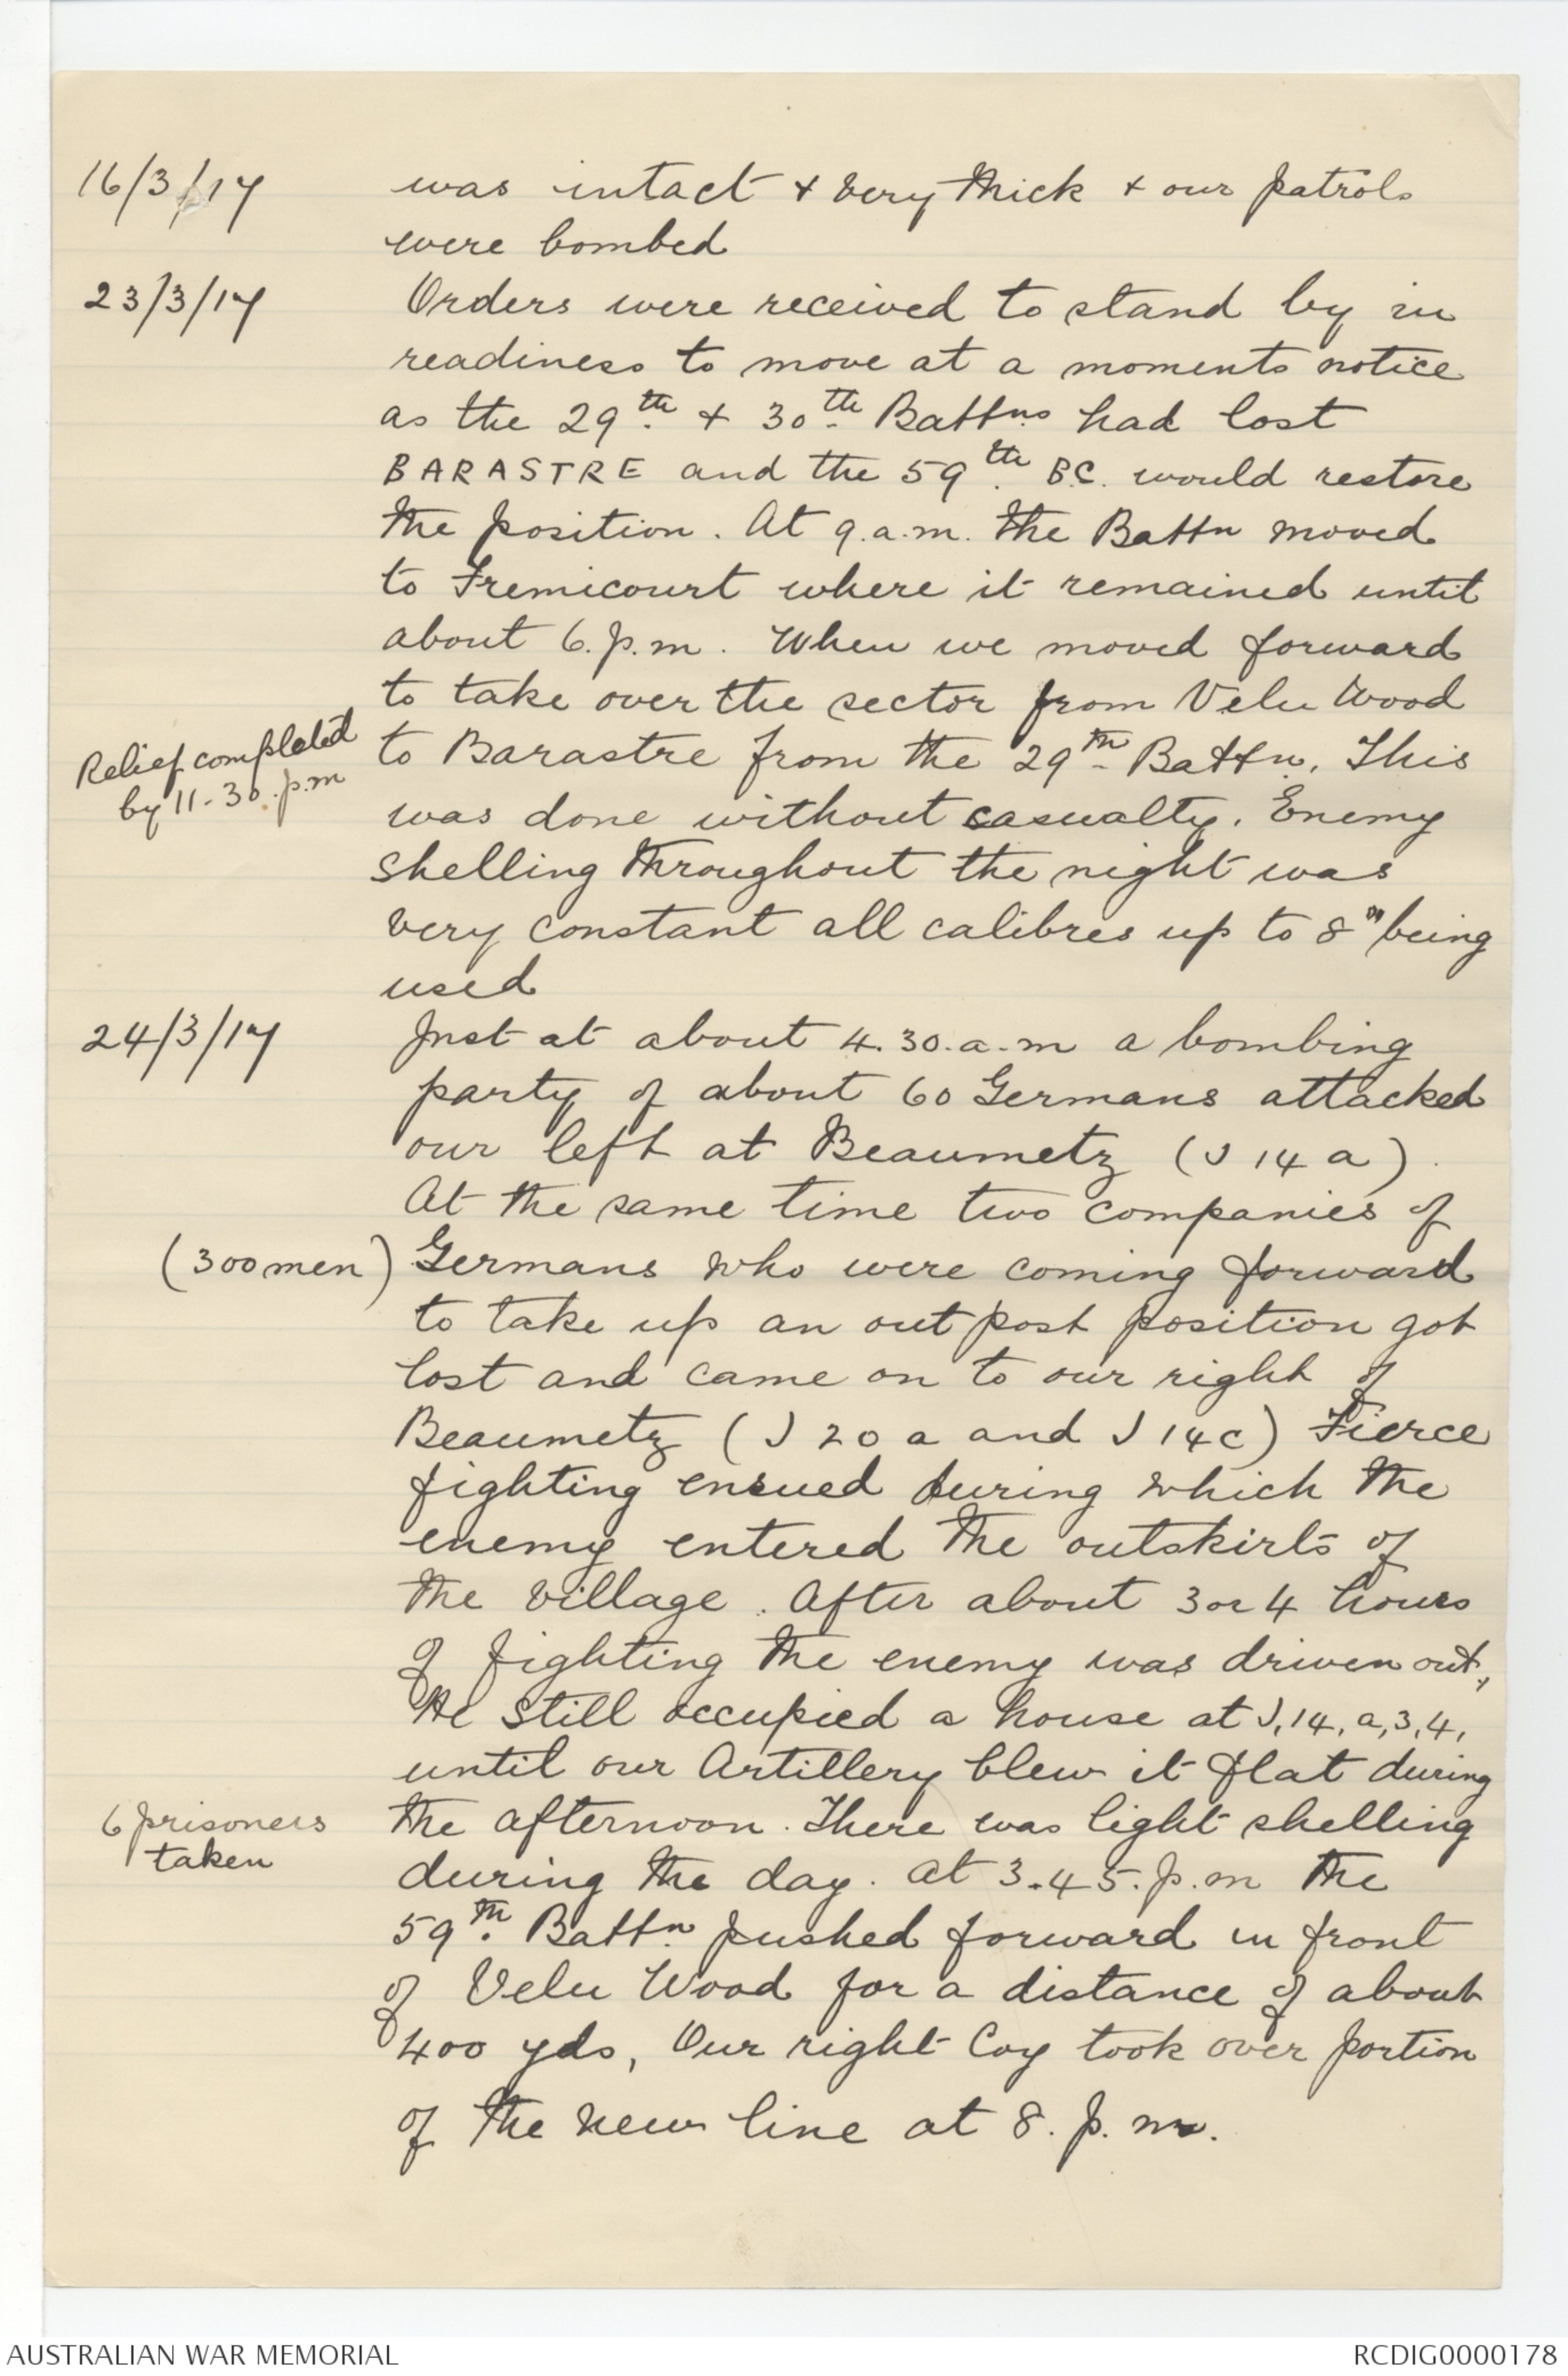 16/3/17 was intact & very thick & our patrols
were bombed
23/3/17 Orders were received to stand by in
readiness to move at a moments notice
as the 29th & 30th Battns had lost
BARASTRE and the 59th B.C. would restore
the position. At 9.a.m. the Battn moved
to Fremicourt where it remained until
about 6.p.m. When we moved forward
to take over the sector from Velu Wood
Relief completed
by 11-30.p.m
to Barastre from the 29th Battn. This
was done without casualty. Enemy
shelling throughout the night was
very constant all calibres up to 8" being
used
24/3/17 Just at about 4.30.a.m a bombing
party of about 60 Germans attacked
our left at Beaumetz (J 14 a).
At the same time two companies of
(300 men) Germans who were coming forward
to take up an out post position got
lost and came on to our right of
Beaumetz (J 20 a and J 14c) Fierce
fighting ensued during which the
enemy entered the outskirts of
the village. After about 3 or 4 hours
of fighting the enemy was driven out,
He still occupied a house at J,14,a,3,4,
until our Artillery blew it flat during
6 prisoners
taken
the afternoon. There was light shelling
during the day. At 3.45.p.m the
59th Battn pushed forward in front
of Velu Wood for a distance of about
400 yds, Our right Coy took over portion
of the new line at 8.p.m.
AUSTRALIAN WAR MEMORIAL
RCDIG0000178